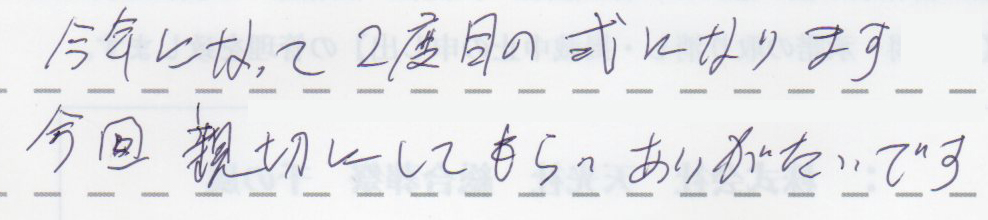 今年になって2度目の式になります
今回 親切にしてもらいありがたいです